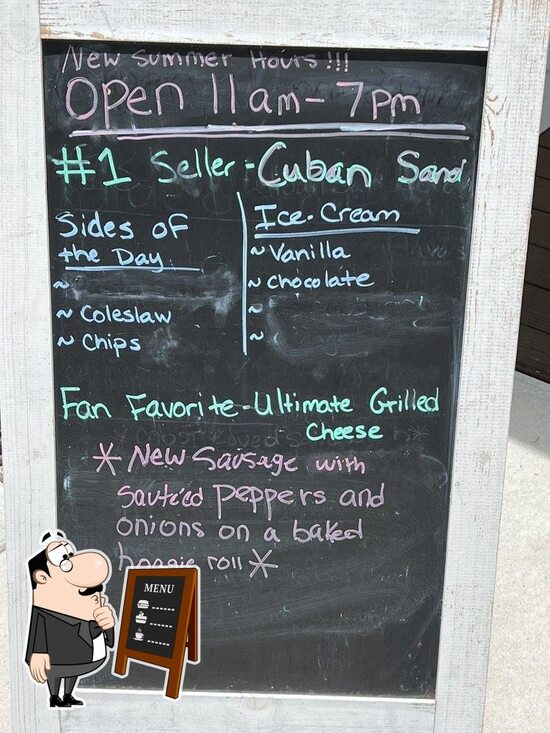 New Summer Hours!!!
Open 11am-7pm
#1 Seller-Cuban Sand
Sides of
the Day
~
~ Coleslaw
~ Chips
Ice-Cream
~Vanilla
~chocolate
~
~
Fan Favorite-Ultimate Grilled
Cheese
* New Sausage with
sautéed peppers and
onions on a baked
hoagie roll *
MENU